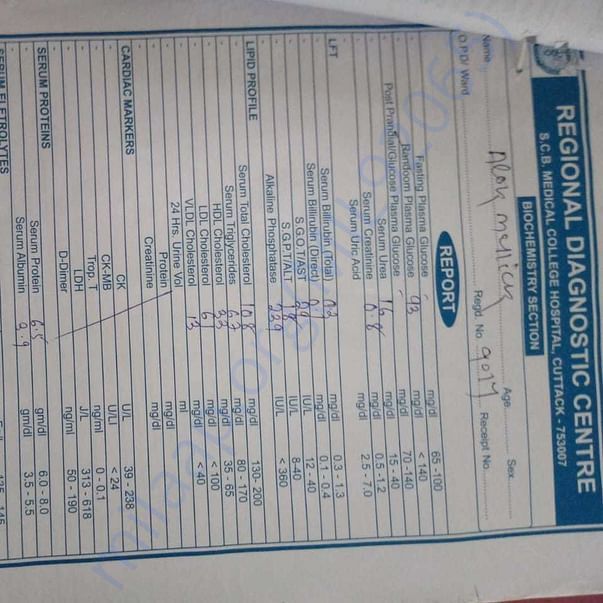 REGIONAL DIAGNOSTIC CENTRE
S.C.B. MEDICAL COLLEGE HOSPITAL, CUTTACK - 753007
BIOCHEMISTRY SECTION
Name Alok Age Sex
O.P.D/ Ward Regd. No. 9017 Receipt No.
REPORT
Fasting Plasma Glucose 93 mg/dl 65 -100
Randoom Plasma Glucose mg/dl < 140
Post Prandial/Glucose Plasma Glucose mg/dl 70 -140
Serum Urea 16 mg/dl 15 - 40
Serum Creatinine 0.8 mg/dl 0.5 -1.2
Serum Uric Acid mg/dl 2.5 - 7.0
LFT
Serum Billirubin (Total) mg/dl 0.3 - 1.3
Serum Billirubin (Direct) mg/dl 0.1 - 0.4
S.G.O.T/AST IU/L 12 - 40
S.G.P.T/ALT IU/L 8-40
Alkaline Phosphatase 229 IU/L < 360
LIPID PROFILE
Serum Total Cholesterol 108 mg/dl 130- 200
Serum Triglycerides 67 mg/dl 80 - 170
HDL Cholesterol 33 mg/dl 35 - 65
LDL Cholesterol 61 mg/dl < 100
VLDL Cholesterol 13 mg/dl < 40
24 Hrs. Urine Vol ml
Protein mg/dl
Creatinine mg/dl
CARDIAC MARKERS
CK U/L 39 - 238
CK-MB U/LI < 24
Trop. T ng/ml 0 - 0.1
LDH J/L 313 - 618
D-Dimer ng/ml 50 - 190
SERUM PROTEINS
Serum Protein 6.5 gm/dl 6.0 - 8.0
Serum Albumin gm/dl 3.5 - 5.5
SERUM ELETROLYTES